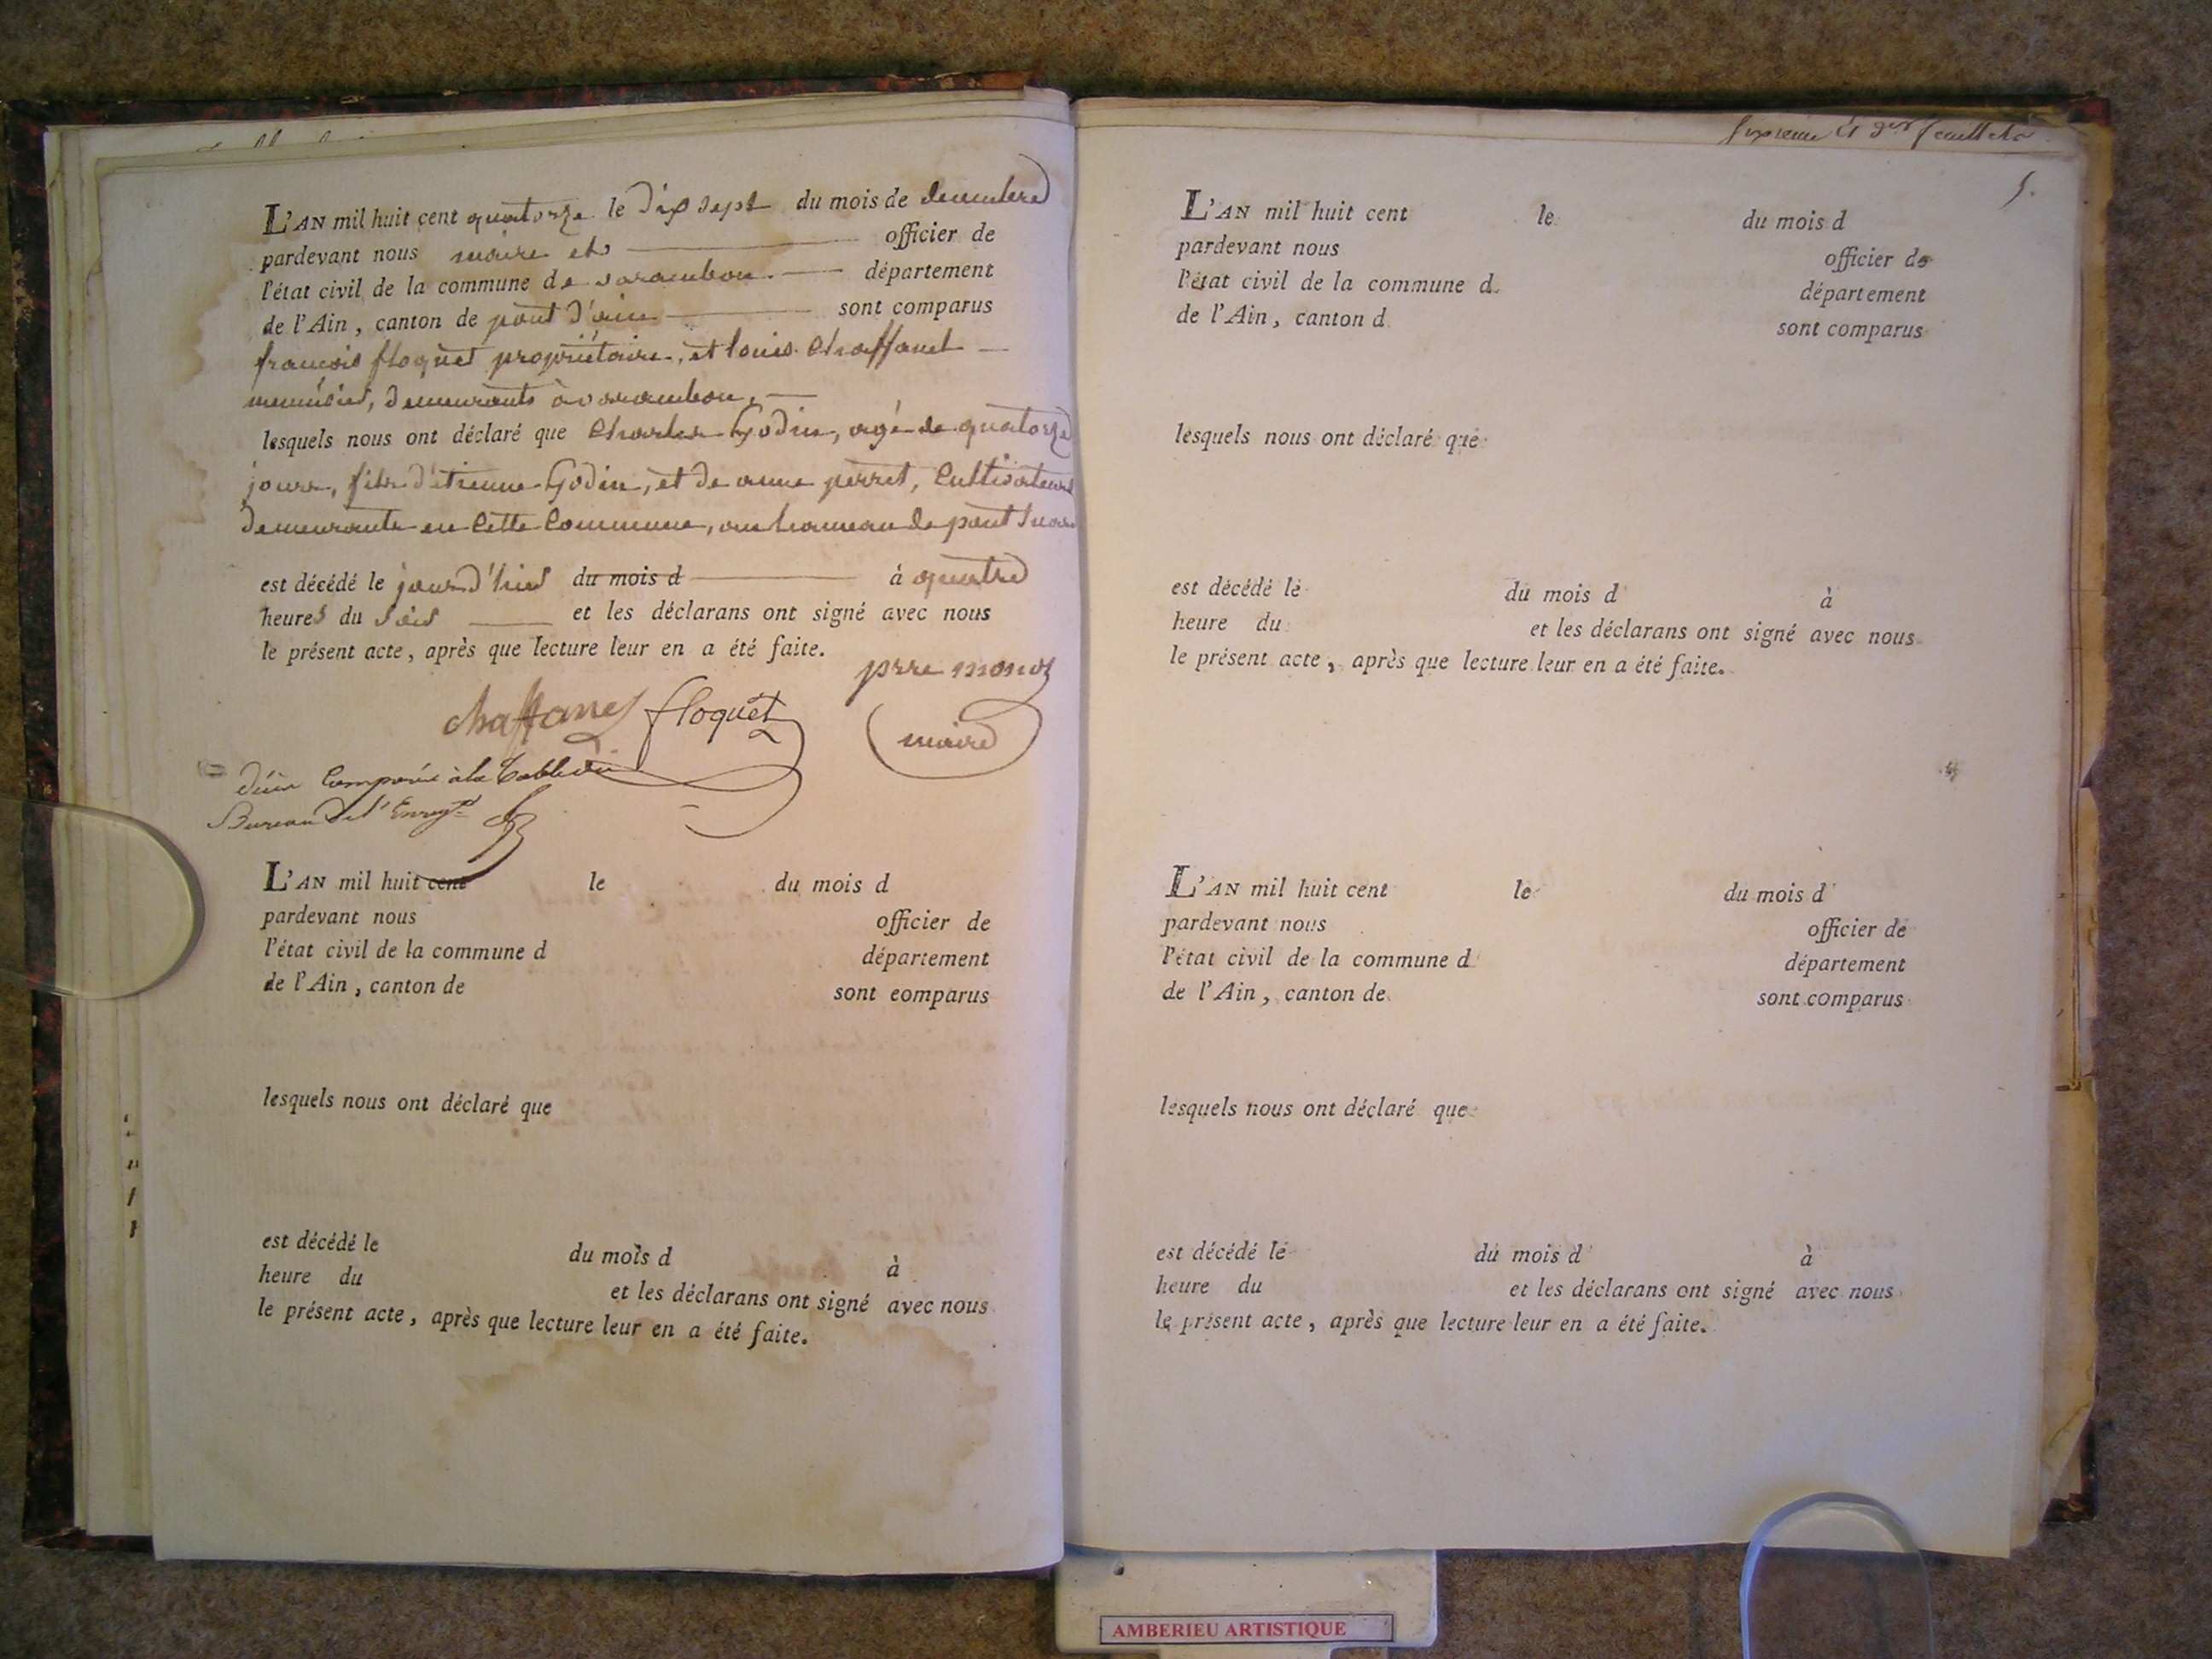 L'AN mil huit cent quatorze le dix sept du mois de decembre
pardevant nous maire et officier de
l'état civil de la commune de varambon. département
de l'Ain, canton de pont d'ain sont comparus
francois floquet propriétaire, et louis Chaffanel
menuisier, demeurants à varambon,
lesquels nous ont déclaré que Charles Godin, agé de quatorze
jours, fils d'étienne Godin, et de anne perret, Cultivateurs
demeurants en Cette Commune, au hameau de pont
est décédé le jour d'hier du mois d à quatre
heures du soir et les déclarans ont signé avec nous
le présent acte, après que lecture leur en a été faite.
prre monoz
chaffanel floquet
maire
Comparée à la Table du
Bureau de l'Enregt
L'AN mil huit cent le du mois d
pardevant nous officier de
l'état civil de la commune d département
de l'Ain, canton de sont eomparus
lesquels nous ont déclaré que
est décédé le du mois d à
heure du et les déclarans ont signé avec nous
le présent acte, après que lecture leur en a été faite.
feuillets
5.
L'AN mil huit cent le du mois d
pardevant nous officier de
l'état civil de la commune d département
de l'Ain, canton d sont comparus
lesquels nous ont déclaré que
est décédé le du mois d à
heure du et les déclarans ont signé avec nous
le présent acte, après que lecture leur en a été faite.
L'AN mil huit cent le du mois d
pardevant nous officier de
l'état civil de la commune d département
de l'Ain, canton de sont comparus
lesquels nous ont déclaré que
est décédé le du mois d à
heure du et les déclarans ont signé avec nous
le présent acte, après que lecture leur en a été faite.
AMBERIEU ARTISTIQUE